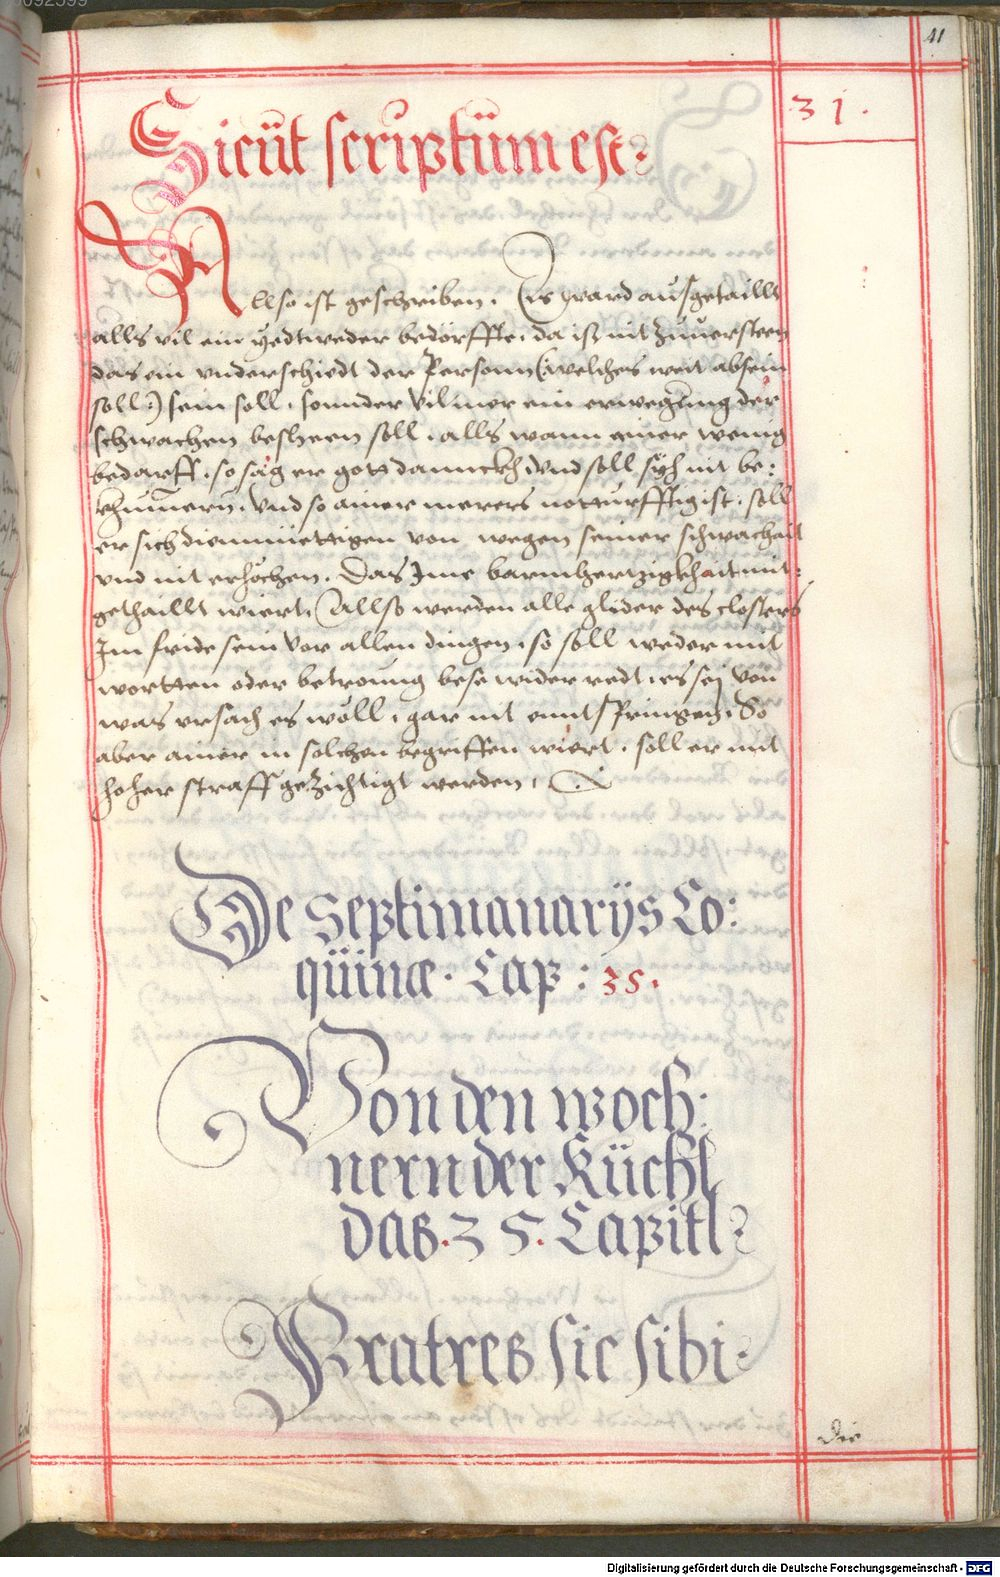 41
31.
Sicüt scriptüm est:
Allso ist geschriben. Es ward ausgetaillt
alls vil ein yedtweder bedorffte, da ist nit zuuersteen
das ein vnderschiedt der Personn (welches weit absein
soll:) sein soll, sonnder vil mer ein erwegung der
schwachen besheen soll, alls wann einer wenig
bedarff, so sag er gott dannckh vnd soll sich nit be:
khümern, Vnd so ainer merers notturfftig ist, soll
er sich diemmüettigen von wegen seiner schwachait
vnd nit erhöchen, Das Jme barmhertzigkhait mit:
gethaillt wiert, Allso werden alle glider des closters
Jm fride sein Vor allen dingen, so soll weder mit
wortten oder betroung bese wider redt, es sej von
was vrsach es wöll, gar nit enntspringen, So
aber ainer in solchen begriffen wiert, soll er mit
hoher straff gezichtigt werden,
De Septimanarijs Co:
qüinæ. Cap: 35.
Von den woch:
nern der Küchl
das. 35. Capitl:
Fratres sic sibi:
die
Digitalisierung gefördert durch die Deutsche Forschungsgemeinschaft - DFG